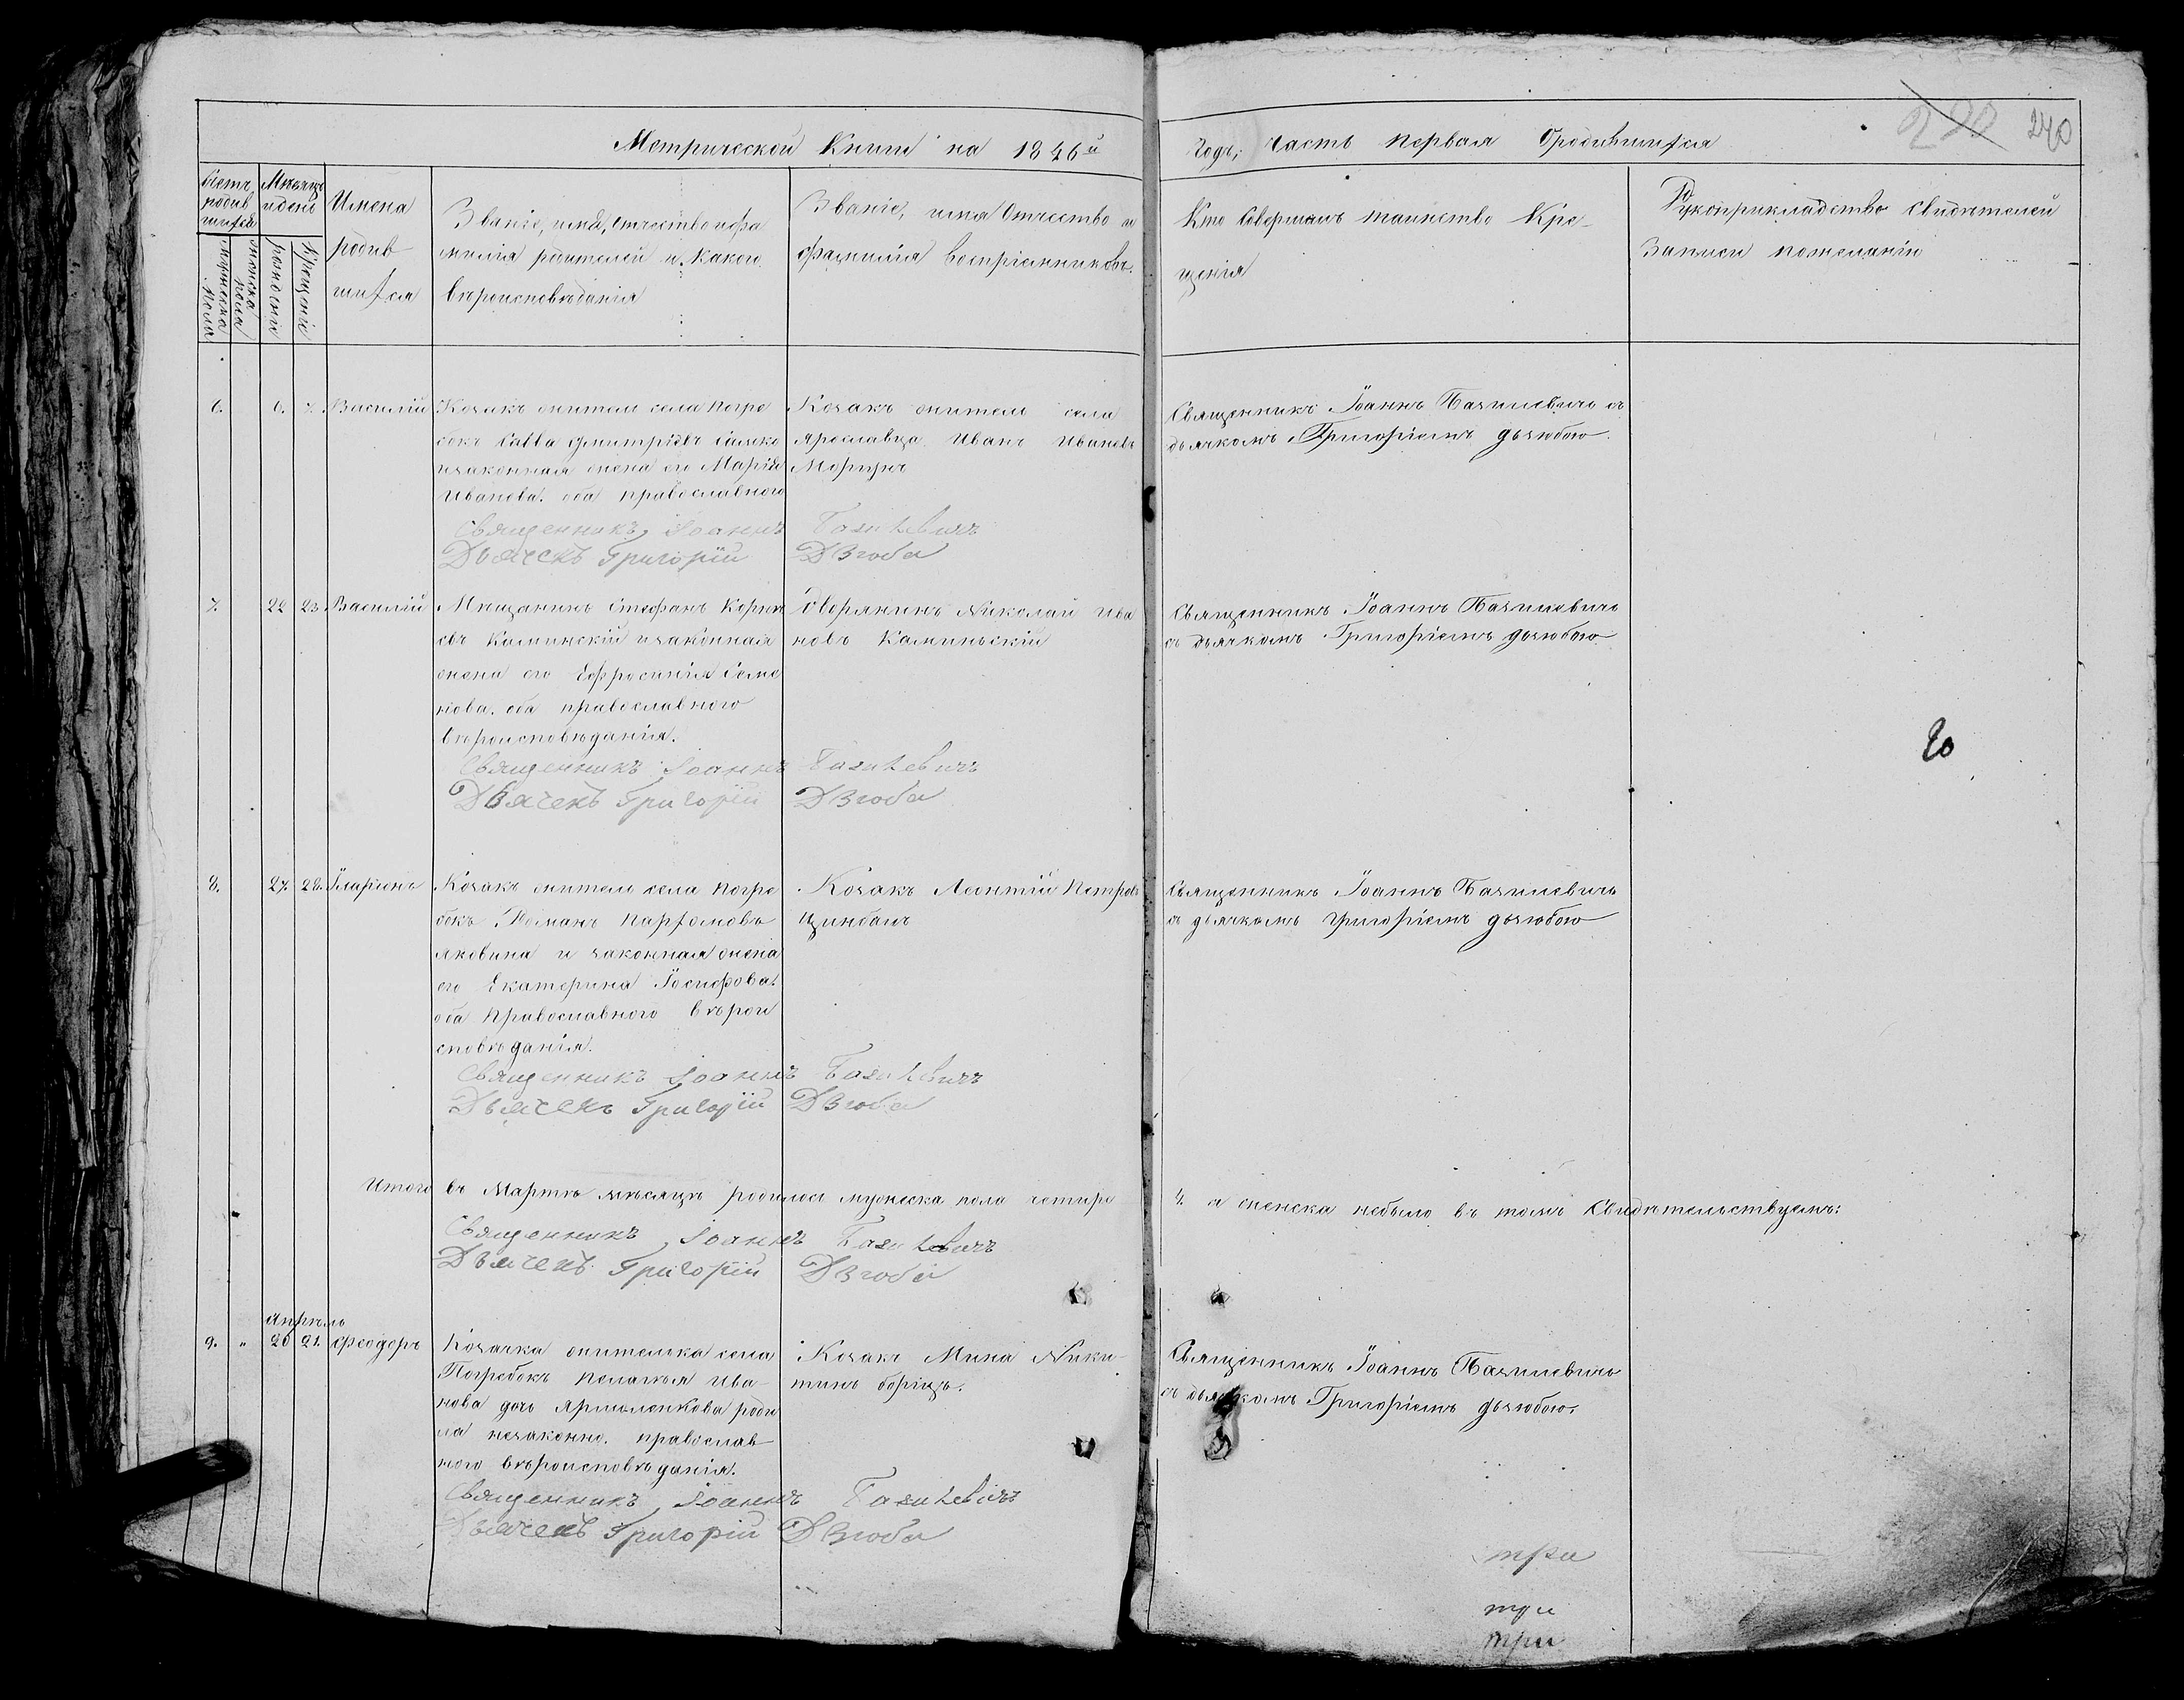 Метрической Книги на 1846й
годъ, часть первая Ородившихся
240
Счетъ родившихся
Мѣсяцъ и день
Имена родившихся
Званіе, имя, отчество и фамилія родителей и какого вѣроисповѣданія
Званіе, имя Отчество и фамилія воспріемниковъ.
Кто Совершалъ таинство Крещенія
Рукоприкладство Свидѣтелей Записи пожеланію
мужеска пола
женска пола
рожденія
Крещенія
6. 6. 7. Василій
Козакъ житель села Погре
бокъ Савва Дмитріевъ
изаконная жена его Марія
Иванова. оба православного
Козакъ житель села
Ярославца Иванъ Ивановъ
Священникъ Іоаннъ Базилевичь съ
дьячкомъ Григоріемъ дзюбою
Священникъ Іоаннъ Базилевичъ
Дьячекъ Григорій Дзюба
7. 22 23. Василій
Мѣщанинъ Стефанъ
евъ Каминскій изаконная
жена его Ефросинія Семе
нова. оба православного
вѣроисповѣданія.
Дворянинъ Николай Ива
новъ Каминьскій
Священникъ Іоаннъ Базилевичь
съ дьячкомъ Григоріемъ дзюбою
Священникъ Іоаннъ Базилевичъ
Дьячекъ Григорій Дзюба
20
8. 27. 28. Иларіонъ
Козакъ житель села Погре
бокъ Романъ Парфомовъ
и законная жена
его Екатерина Іосифова.
оба Православного вѣрои
сповѣданія.
Козакъ Леонтій Петровъ
Цинбалъ
Священникъ Іоаннъ Базилевичь
съ дьячкомъ григоріемъ дзюбою
Священникъ Іоаннъ Базилевичъ
Дьячекъ Григорій Дзюба
Итого въ Мартѣ мѣсяцѣ родилось мужеска пола четыре
4. а женска небыло въ томъ Свидѣтельствуемъ:
Священникъ Іоаннъ Базилевичъ
Дьячекъ Григорій Дзюба
Апрѣль
9. „ 20 21. Феодоръ
Козачка жителька села
Погребокъ Пелагѣя Ива-
нова дочь Ярмоленкова роди
ла незаконно. православ
ного вѣроисповѣданія.
Козакъ Мина Ники-
тинъ борщъ.
Священникъ Іоаннъ Базилевичь
съ дьячкомъ Григоріемъ дзюбою.
Священникъ Іоаннъ Базилевичъ
Дьячекъ Григорій Дзюба
три
три
три